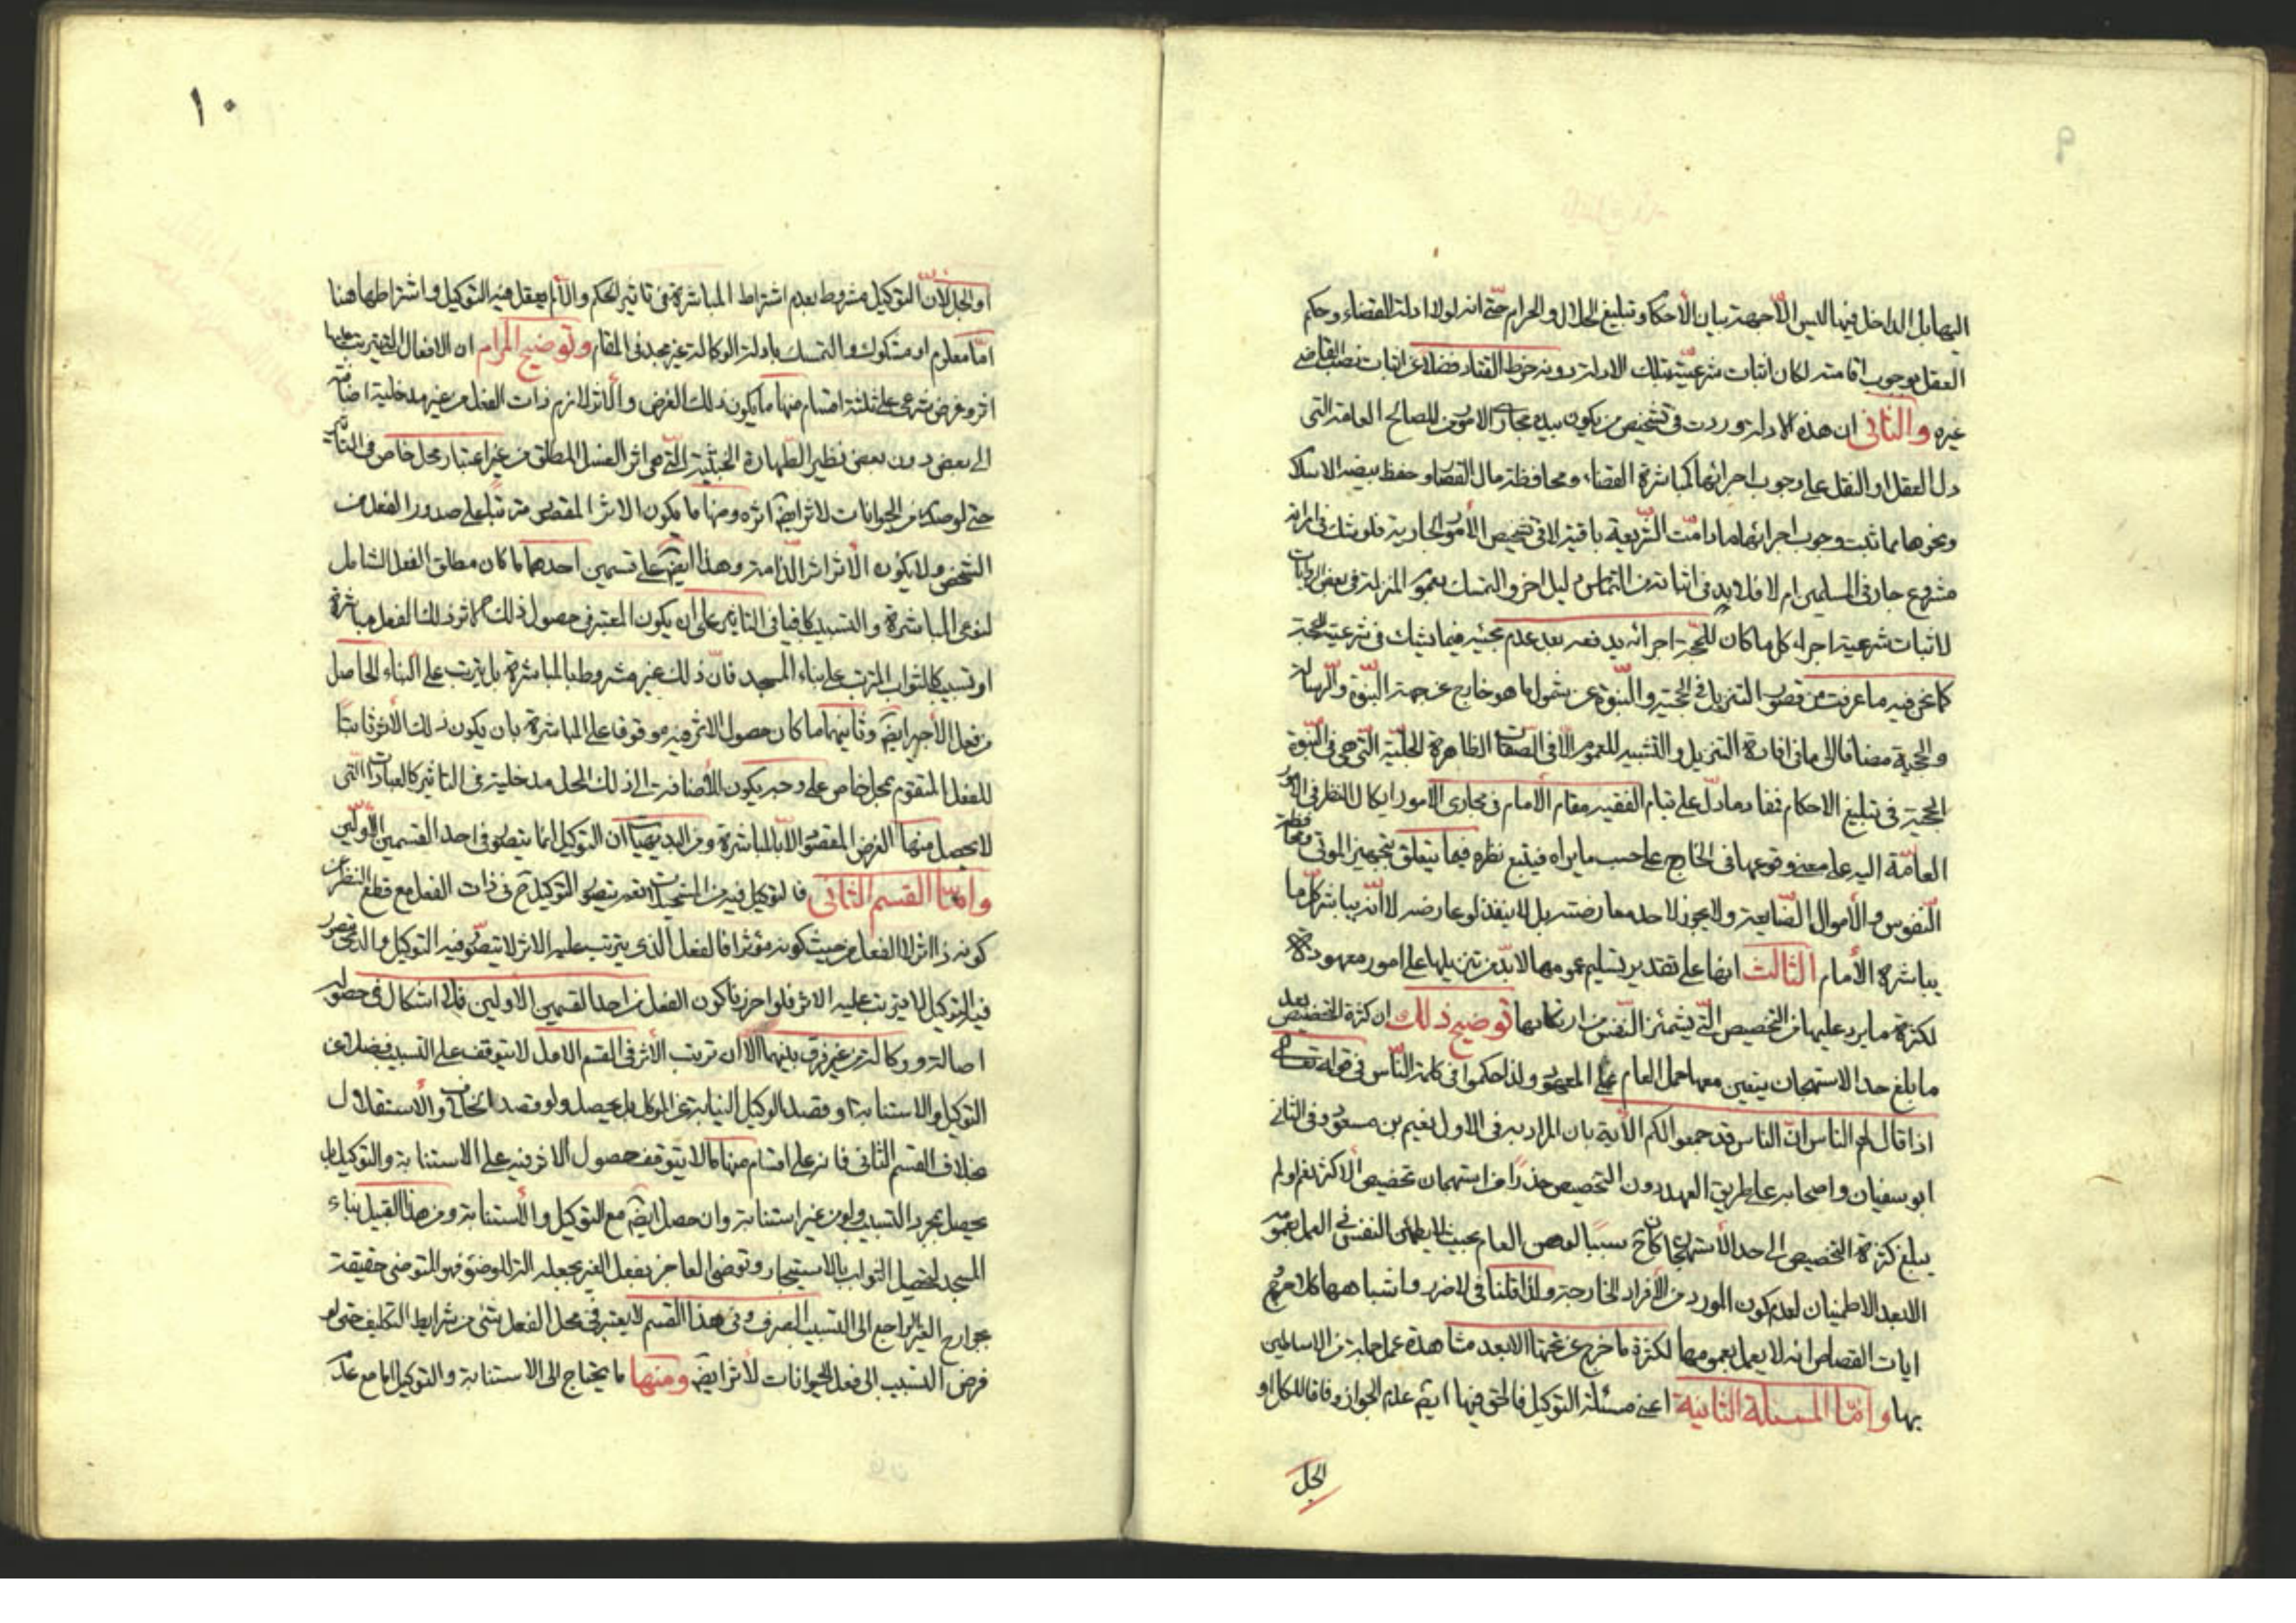 اليها بل الداخل فيها ليس الا جهة بيان الأحكام وتبليغ الحلال والحرام حتى انه لولا ادلة القضاء وحكم
العقل بوجوب اقامته لكان اثبات شرعيته بتلك الادلة دونه خرط القتاد فضلا عن اثبات نصب القاضى
غيره والثانى ان هذه الادلة وردت فى تشخيص من يكون بيده مجارى الامور من المصالح العامة التى
دل العقل او النقل على وجوب اجرائها كمباشرة القضاء ومحافظة مال القصّر وحفظ بيضة الاسلام
ونحوها مما ثبت وجوب اجرائها ما دامت الشريعة باقية لا فى تشخيص الأمور الجارية فلو شك فى امر انه
مشروع جار فى المسلمين ام لا فلا بد فى اثباته من التماس دليل اخر والتمسك بعموم المنزلة فى بعض الروايات
لاثبات شرعية اجراء كل ما كان للحجة اجرائه يدفعه بعد عدم مجيئه فيما يشك فى شرعيته للحجة
كما نحن فيه ما عرفت من قصور التنزيل فى الحجية والنبوة عن شمول ما هو خارج عن جهة النبوة والرسالة
والحجية مضافا الى ما فى افادة التنزيل والتشبيه للعموم الا فى الصفات الظاهرة الجلية التى هى فى النبوة
الحجية فى تبليغ الاحكام فمفاد ما دل على قيام الفقيه مقام الأمام فى مجارى الأمور ايكال النظر فى الامور
العامة اليه على معنى وقوعها فى الخارج على حسب ما يراه فيتبع نظره فيما يتعلق بتجهيز الموتى ومحافظة
النفوس والأموال الضايعة ولا يجوز لاحد معارضته بل لا ينفذ لو عارضه لا أنه يباشر كل ما
يباشره الأمام الثالث انها على تقدير تسليم عمومها لا بد من تنزيلها على امور معهودة
لكثرة ما يرد عليها من التخصيص التى يشمئز النفس من ارتكابها توضيح ذلك ان كثرة التخصيص بعد
ما بلغ حد الاستهجان يتعين معها حمل العام على المعهود ولذا حكموا فى كلمة الناس فى قوله تعالى
اذ قال لهم الناس ان الناس قد جمعوا لكم الأية بان المراد به فى الاول نعيم بن مسعود وفى الثانى
ابو سفيان واصحابه على طريق العهد دون التخصيص حذرا من استهجان تخصيص الاكثر نعم لو لم
يبلغ كثرة التخصيص الى حد الأستهجان كان ح سببا لوهن العام بحيث لا يطمئن النفس فى العمل بعمومه
الا بعد الاطمينان لعدم كون المورد من الأفراد الخارجة ولذا قلنا فى لا ضرر واشباهها كلا
ايات القصاص انه لا يعمل بعمومها لكثرة ما خرج عن تحتها الا بعد مشاهدة عمل جماعة من الاساطين
بها وامّا المسئلة الثانية اعنى مسئلة التوكيل فالحق فيها ايضا عدم الجواز وفاقا للكل او
الجل
١٠
او الجل لأن التوكيل مشروط بعدم اشتراط المباشرة فى تاثير الحكم والّا لم يعقل فيه التوكيل واشتراطها هنا
امّا معلوم او مشكوك والتمسك بادلة الوكالة غير مجد فى المقام وتوضيح المرام ان الافعال التى يترتب عليها
اثر وغرض شرعى على ثلثة اقسام منها ما يكون ذلك الغرض والأثر لازم ذات الفعل من غير مدخلية اضافته
الى بعض دون بعض نظير الطهارة الخبثية التى هى اثر الغسل المطلق من غير اعتبار محل خاص فى التاثير
حتى لو صدر من الحيوانات لاثر ايضا اثره ومنها ما يكون الاثر المقصود مترتبا على صدور الفعل من
الشخص ولا يكون الأثر اثر الذاته وهذا ايضا على قسمين احدهما ما كان مطلق الفعل الشامل
لنوعى المباشرة والتسبيب كافيا فى التاثير على ان يكون المعتبر فى حصول ذلك الاثر ذلك الفعل مباشرة
او تسبيبا كالثواب المترتب على بناء المسجد فان ذلك غير مشروط بالمباشرة بل يترتب على البناء الحاصل
من فعل الأجير ايضا وثانيهما ما كان حصول الاثر فيه موقوفا على المباشرة بان يكون ذلك الأثر ثابتا
للفعل المتقوم بمحل خاص على وجه يكون للأضافة الى ذلك المحل مدخلية فى التاثير كالعبادات التى
لا يحصل منها الغرض المقصود الا بالمباشرة ومن البديهيات ان التوكيل انما يتصور فى احد القسمين الأولين
وامّا القسم الثانى فالتوكيل فيه من المستحيلات نعم يتصور التوكيل ح فى ذات الفعل مع قطع النظر عن
كونه ذا اثر لا الفعل من حيث كونه مؤثرا فالفعل الذى يترتب عليه الاثر لا يتصور فيه التوكيل والذى يتصور
فيه التوكيل لا يترتب عليه الاثر فلو احرزنا كون الفعل من احد القسمين الاولين فلا اشكال فى حصوله
اصالة ووكالة من غير فرق بينهما الا ان ترتب الأثر فى القسم الاول لا يتوقف على التسبيب فضلا عن
التوكيل والاستنابة او قصد الوكيل النيابة عن الموكل بل يحصل ولو قصد الخلاف والأستقلال
بخلاف القسم الثانى فانه على اقسام منها ما لا يتوقف حصول الاثر فيه على الاستنابة والتوكيل بل
يحصل بمجرد التسبيب ولو من غير استنابة وان حصل ايضا مع التوكيل والأستنابة ومن هذا القبيل بناء
المسجد لتحصيل الثواب بالاستيجار وتوضى العاجز بفعل الغير بجعله الة للوضوء فهو المتوضى حقيقة
بجوارح الغير الراجع الى التسبيب الصرف وفى هذا القسم لا يعتبر فى محل الفعل شئ من شرايط التكليف حتى لو
فرض التسبيب الى فعل الحيوانات لأثر ايضا ومنها ما يحتاج الى الاستنابة والتوكيل اما مع عدم